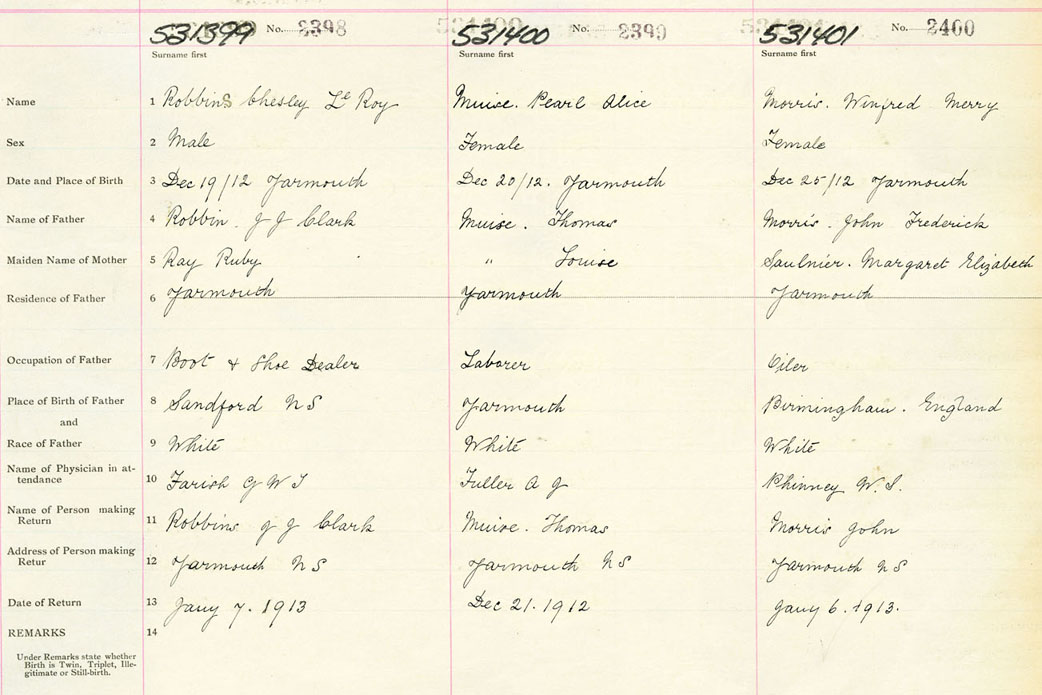 531399 No. 2398 531400 No. 2399 531401 No. 2400
Surname first Surname first Surname first
Name 1 Robbins Chesley Le Roy Muise. Pearl Alice Morris. Winifred Merry
Sex 2 Male Female Female
Date and Place of Birth 3 Dec 19/12 Yarmouth Dec 20/12. Yarmouth Dec 25/12 Yarmouth
Name of Father 4 Robbin. J J Clark Muise. Thomas Morris. John Frederick
Maiden Name of Mother 5 Ray Ruby " Louise Saulnier. Margaret Elizabeth
Residence of Father 6 Yarmouth Yarmouth Yarmouth
Occupation of Father 7 Boot & Shoe Dealer Laborer Oiler
Place of Birth of Father 8 Sandford NS Yarmouth Birmingham. England
and
Race of Father 9 White White White
Name of Physician in at-
tendance 10 Farish G W T Fuller A G Phinney W. S.
Name of Person making
Return 11 Robbins J J Clark Muise. Thomas Morris John
Address of Person making
Retur 12 Yarmouth NS Yarmouth NS Yarmouth NS
Date of Return 13 Jany 7. 1913 Dec 21. 1912 Jany 6. 1913.
REMARKS 14
Under Remarks state whether
Birth is Twin, Triplet, Ille-
gitimate or Still-birth.